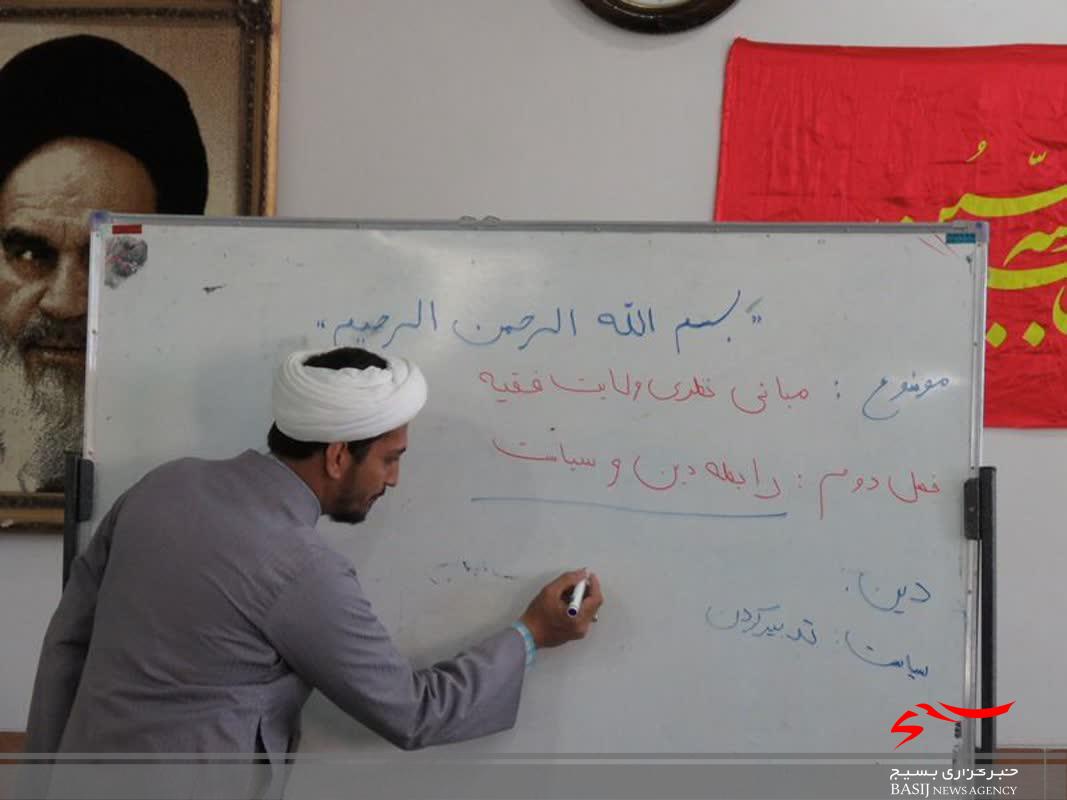 "بسم الله الرحمن الرحیم"
موضوع : مبانی نظری ولایت فقیه
فصل دوم : رابطه دین و سیاست
دین :
سیاست : تدبیر کردن
خبرگزاری بسیج
BASIJ NEWS AGENCY